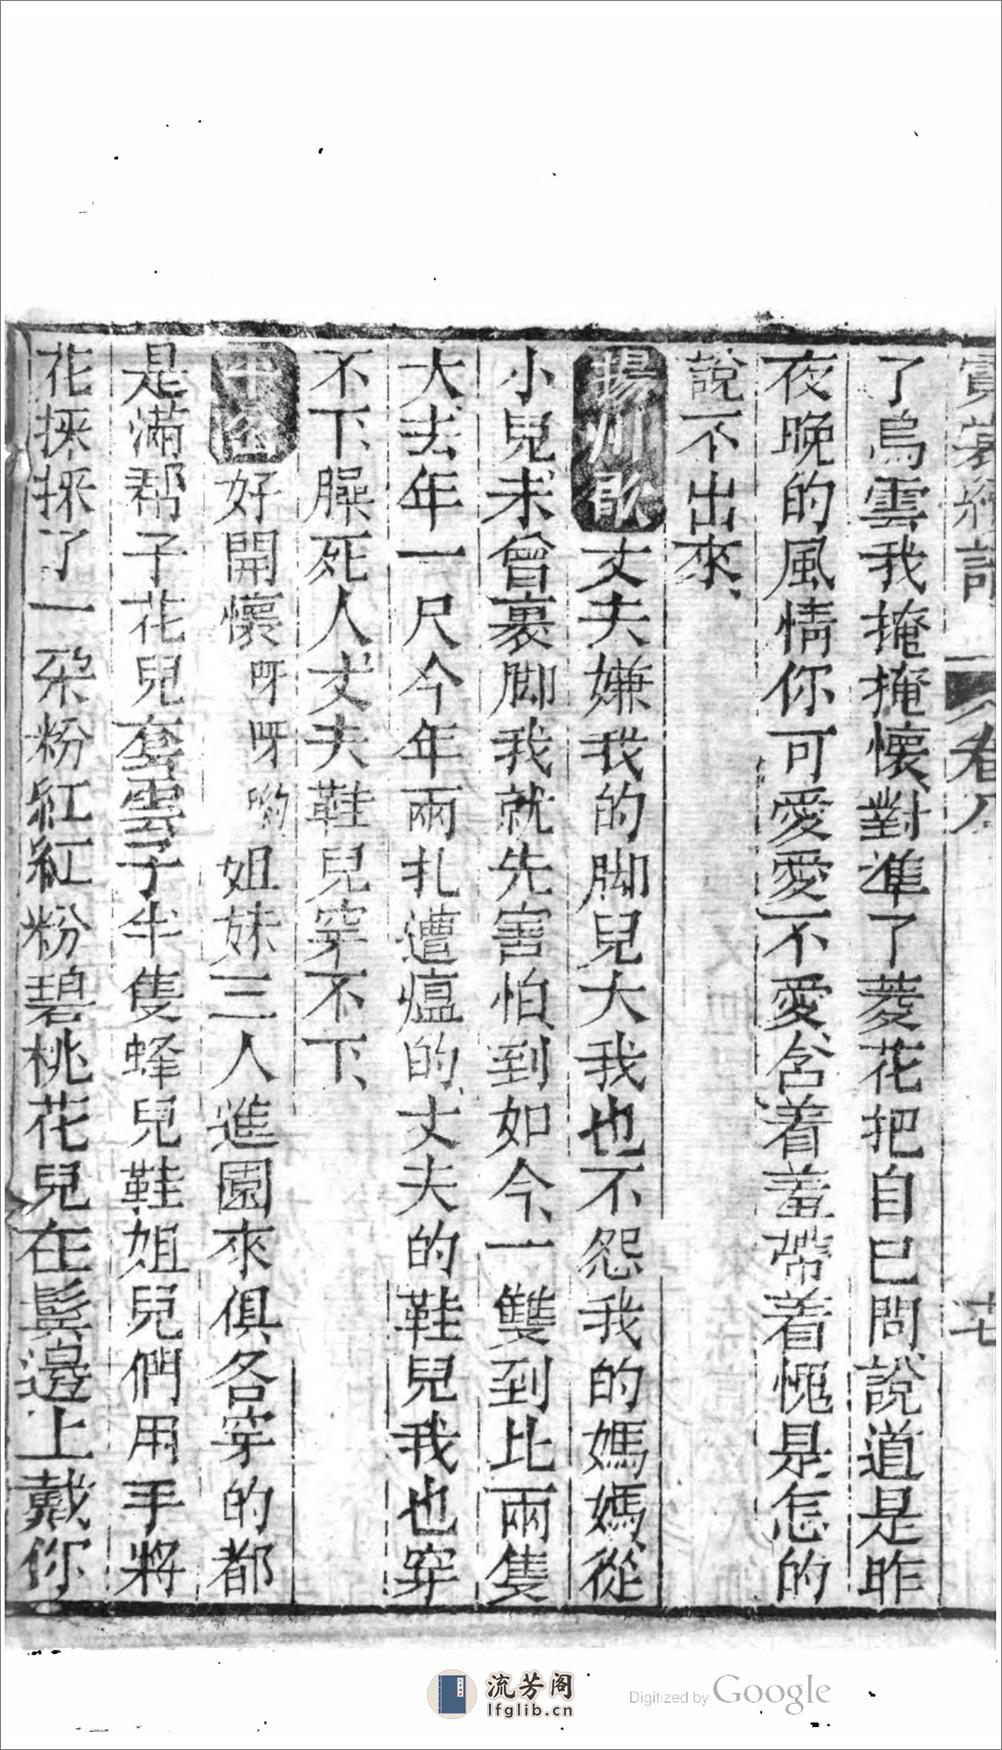 了烏雲我掩掩懷、對準了菱花把自己問、說道是昨
夜晚的風情你可愛愛不愛、含着羞帶着愧是怎的
說不出來、
揚州歌 丈夫嫌我的脚兒大我也不怨我的媽媽、從
小兒未曾裹脚我就先害怕、到如今、一雙到比兩隻
大、去年一尺今年兩扎遭瘟的、丈夫的鞋兒我也穿
不下、臊死人丈夫鞋兒穿不下、
好開懷呀呀喲姐妹三人進園來俱各穿的都
是滿幇子花兒套雲子半隻蜂兒鞋、姐兒們用手將
花採採了一朶粉紅紅粉碧桃花兒在鬂邊上戴你
卷八
流芳阁
lfglib.cn
Digitized by Google